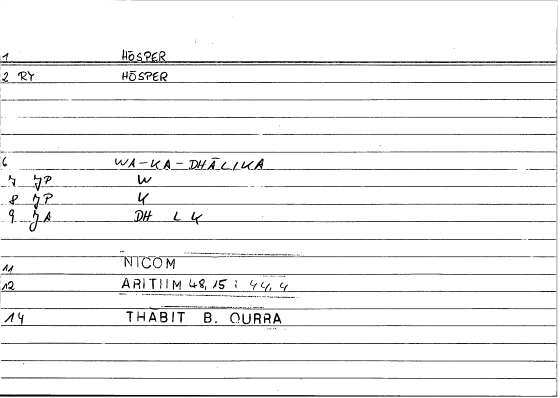 1 HŌSPER
2 RY HŌSPER
6 WA-KA-DHĀLIKA
7 JP W
8 JP K
9 JA DH L K
11 NICOM
12 ARITIIM 48,15 : 44,4
14 THABIT B. QURRA